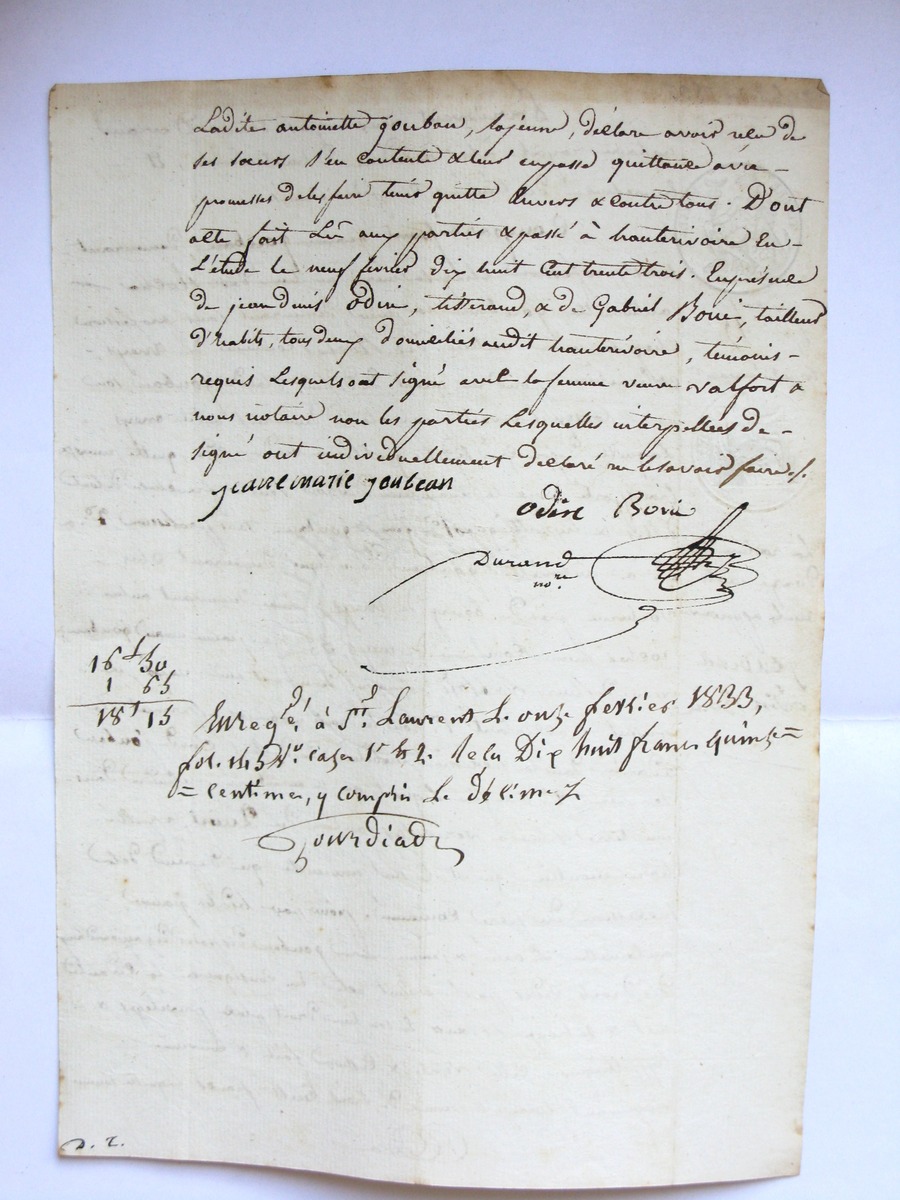 Ladite antoinette Joubau, lajeune, déclare avoir reçu de
ses sœurs s'en contente & leur enpasse quittance avec
promesses de les faire tenir quitte Envers & contre tous. Dont
acte fait Lû aux parties & passé à hauterivoire En
L'étude le neuf février dix huit Cent trente trois. En présence
de jean denis Odin, tisserand, & de Gabriel Borie, tailleur
d'habits, tous deux domiciliés audit hauterivoire, témoins
requis Lesquels ont signé avec la femme veuve valfort &
nous notaire non les parties Lesquelles interpellées de
signé ont individuellement déclaré ne le savoir faire ./.
jeanemarie joubeau
odin Borie
Durand
nore.
16f 50
1 65
18f 15
Enregé. à St. Laurent Le onze fevrier 1833,
fol. 145 Vo. cases 1re & 2. recu Dix huit francs quinze =
= centimes, y compris Le Décime
Jourdiade
D. T.